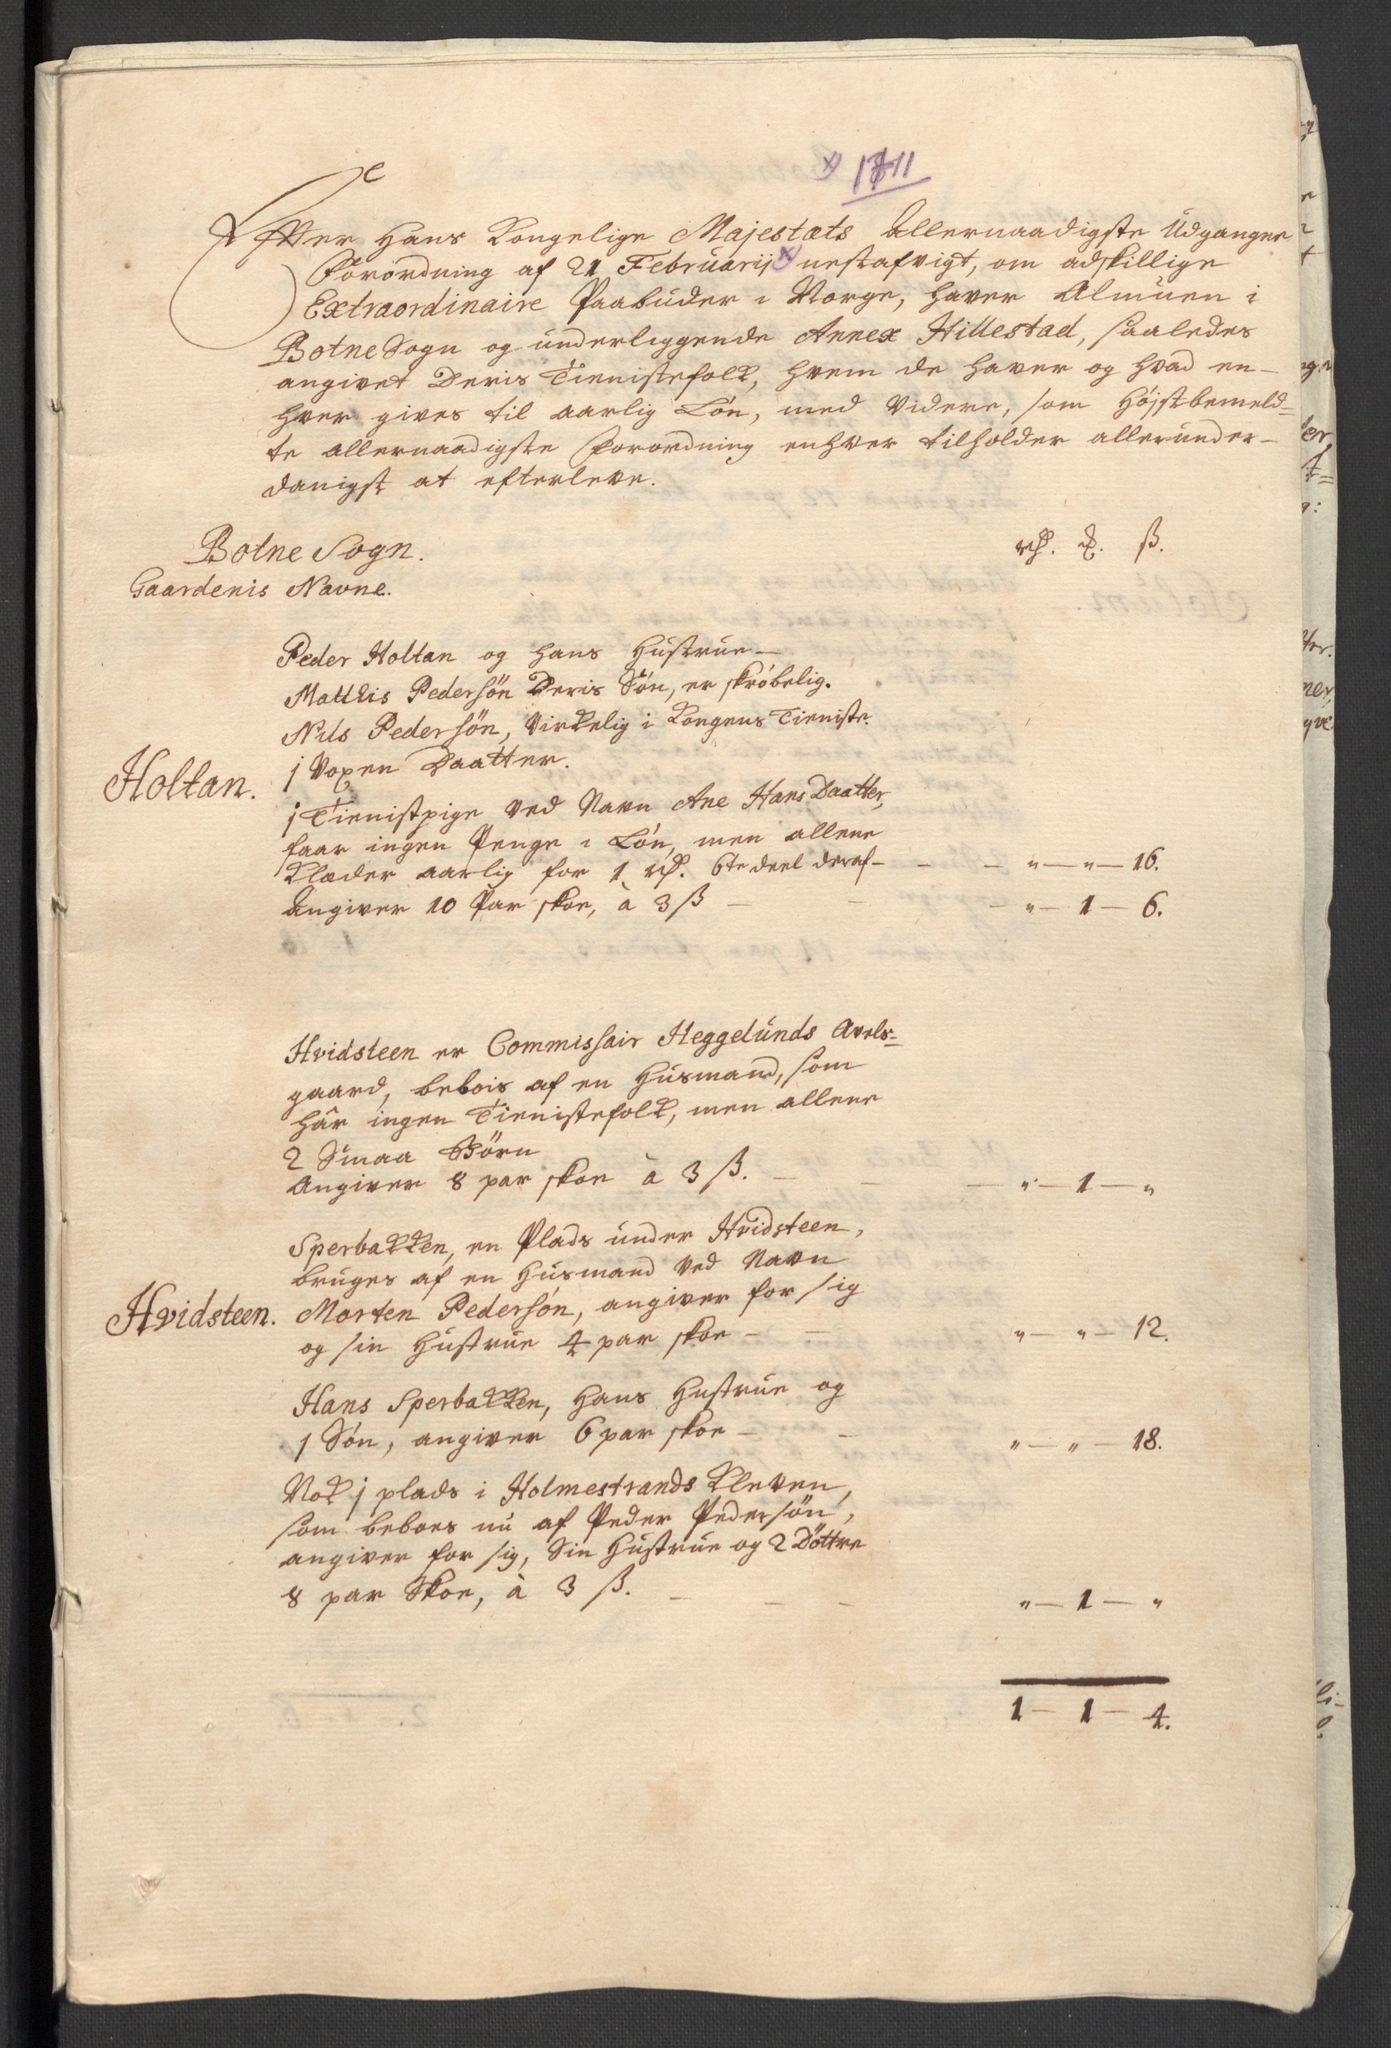 x 1711
Efter Hans Kongelige Majestæts Allernaadigste Udgangne
Forordning af 21 Februarij x nestafvigt, om adskillige
Extraordinaire Paabuder i Norge, haver Almuen i
Botne Sogn og underliggende Annex Hillestad, saaledes
angivet Deris Tienistefolk, hvem de haver og hvad en-
hver gives til aarlig Løn, med Videre, som Højstbemeld=
te allernaadigste Forordning enhver tilholder allerunder-
danigst at efterleve.
Botne Sogn.
rd. ₰. ß.
Gaardenis Navne.
Peder Holtan og hans Hustrue —
Mathis Pedersøn Deris Søn, er skrøbelig.
Nils Pedersøn, Virkelig i Kongens Tieniste.
j Voxen Daatter.
Holtan.
j Tienistpige ved Navn Ane Hans Daatter,
faar ingen Penge i Løn, men allene
Klæder aarlig for 1 rd. 6te deel deraf — — — „ — „ — 16.
Angiver 10 Par skoe, à 3 ß — — — „ — 1 — 6.
Hvidsteen er Commissair Heggelunds Avels=
gaard, beboes af en Husmand, som
har ingen Tienistefolk, men allene
2 Smaa Børn
Angiver 8 par skoe à 3 ß. — — — „ — 1 — „
Sperbakken, en Plads under Hvidsteen,
bruges af en Husmand ved Navn
Hvidsteen. Morten Pedersøn, angiver for sig
og sin Hustrue 4 par skoe — — „ — „ — 12.
Hans Sperbakken, hans Hustrue og
1 Søn, angiver 6 par skoe — — „ — „ — 18.
Nok j plads i Holmestrands Kleven,
som beboes nu af Peder Pedersøn,
angiver for sig, Sin Hustrue og 2 Døttre
8 par Skoe, à 3 ß. — — — „ — 1 — „
1 — 1 — 4.